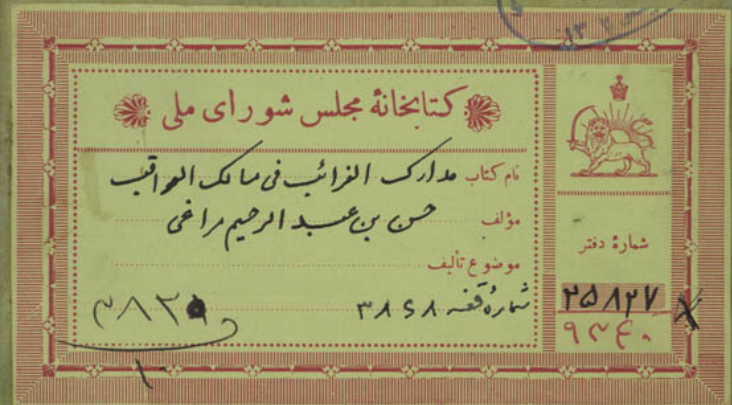 کتابخانهٔ مجلس شورای ملی
نام کتاب مدارک الغرائب فی مسالک
مؤلف حسن بن عبد الرحیم مراغی
موضوع تألیف
شمارهٔ قفسه ۳۸۶۸
شمارهٔ دفتر
۲۵۸۲۷
۹۳۴۰
۱۰